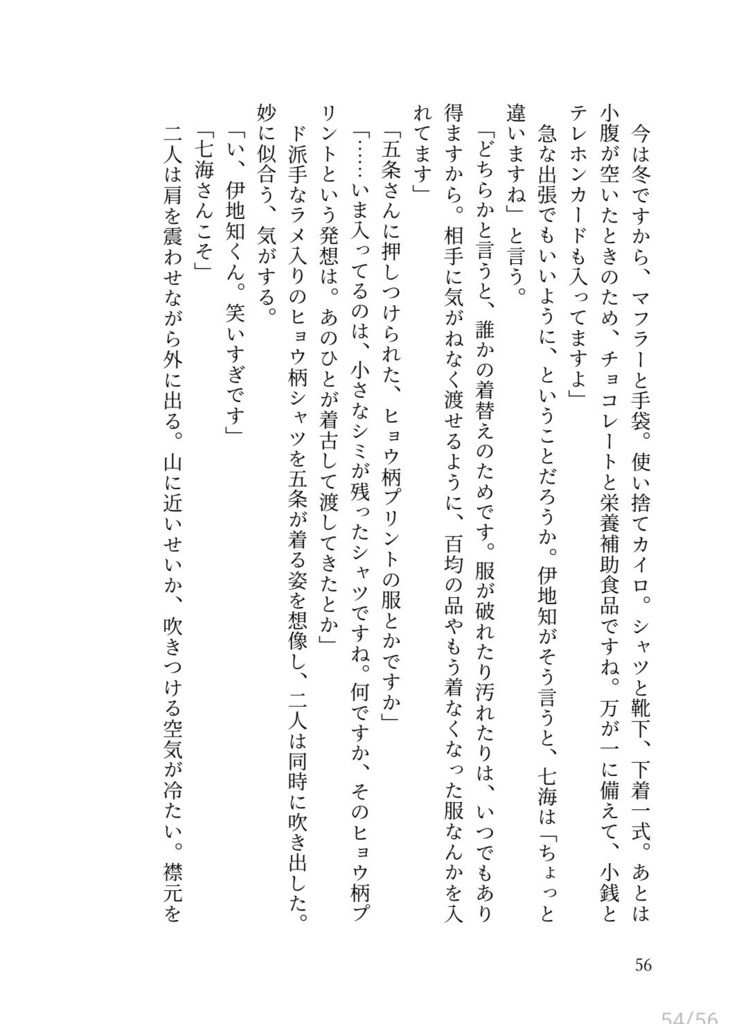 今は冬ですから、マフラーと手袋。使い捨てカイロ。シャツと靴下、下着一式。あとは
小腹が空いたときのため、チョコレートと栄養補助食品ですね。万が一に備えて、小銭と
テレホンカードも入ってますよ」
急な出張でもいいように、ということだろうか。伊地知がそう言うと、七海は「ちょっと
違いますね」と言う。
「どちらかと言うと、誰かの着替えのためです。服が破れたり汚れたりは、いつでもあり
得ますから。相手に気がねなく渡せるように、百均の品やもう着なくなった服なんかを入
れてます」
「五条さんに押しつけられた、ヒョウ柄プリントの服とかですか」
「……いま入ってるのは、小さなシミが残ったシャツですね。何ですか、そのヒョウ柄プ
リントという発想は。あのひとが着古して渡してきたとか」
ド派手なラメ入りのヒョウ柄シャツを五条が着る姿を想像し、二人は同時に吹き出した。
妙に似合う、気がする。
「い、伊地知くん。笑いすぎです」
「七海さんこそ」
二人は肩を震わせながら外に出る。山に近いせいか、吹きつける空気が冷たい。襟元を
56
54/56